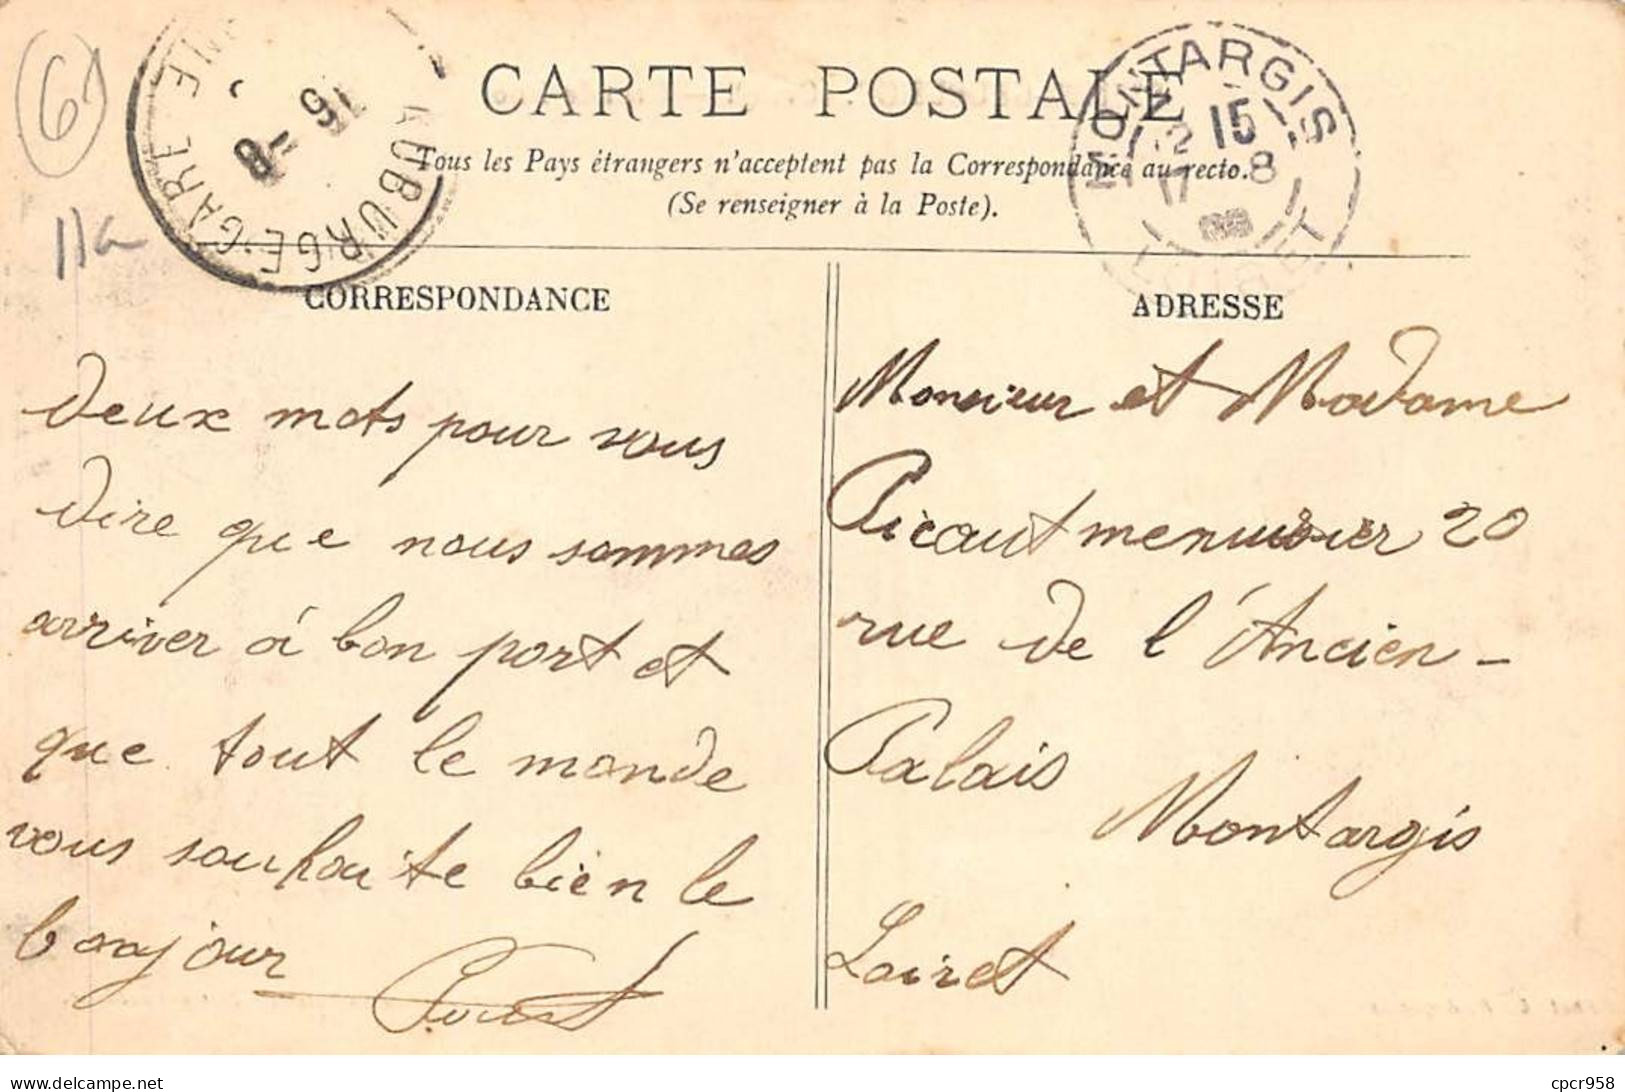 6
11a
AUBURGE GARE
16 - 8
MONTARGIS
12 15
17 8
LOIRET
CARTE POSTALE
Tous les Pays étrangers n'acceptent pas la Correspondance au recto.
(Se renseigner à la Poste).
CORRESPONDANCE
deux mots pour vous
dire que nous sommes
arriver à bon port et
que tout le monde
vous souhaite bien le
bonjour
ADRESSE
Monsieur et Madame
Picaut menuisier 20
rue de l'Ancien-
Palais
Montargis
Loiret
www.delcampe.net
cpcr958